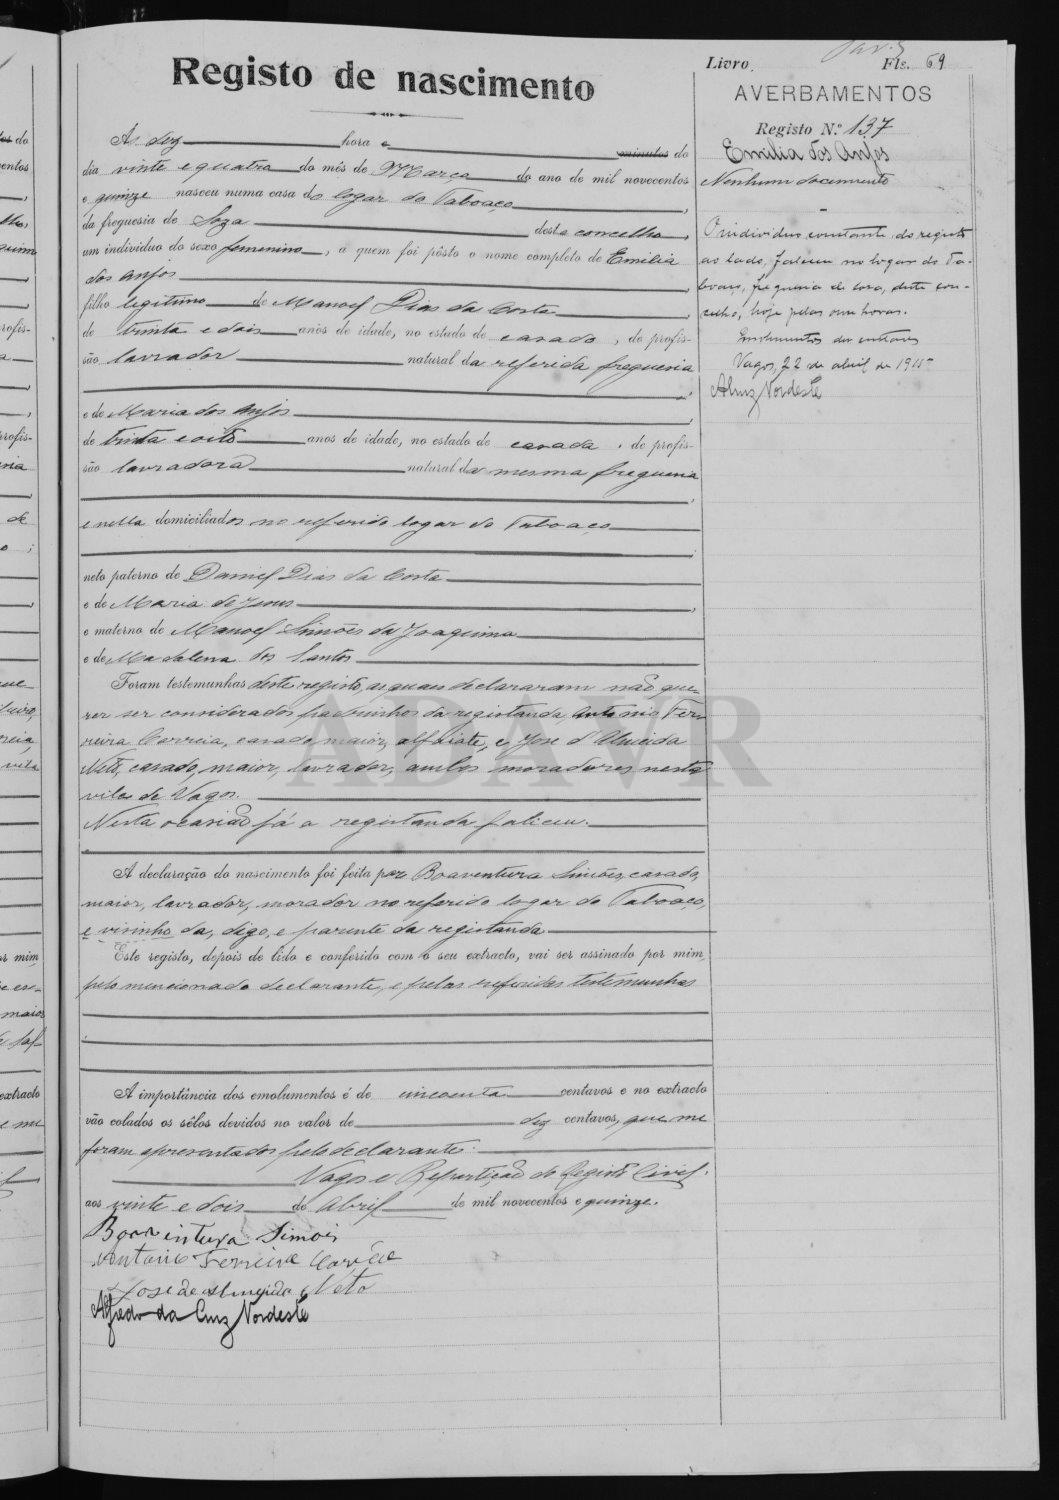 Registo de nascimento
Livro Fls. 69
AVERBAMENTOS
Registo N.º 137
Emilia dos Anjos
Nenhum documento
O individuo constante do registo
ao lado, faleceu no logar do Ta-
boaço, freguesia de Soza, deste con-
celho, hoje pelas onze horas.
Vagos, 22 de abril de 1915
ACruz Nordeste
Ás dez hora e minutos do
dia vinte e quatro do mês de Março do ano de mil novecentos
e quinze nasceu numa casa do logar do Taboaço,
da freguesia de Soza deste concelho,
um individuo do sexo feminino, a quem foi pôsto o nome completo de Emilia
dos Anjos,
filho legitimo de Manoel Dias da Costa,
de trinta e dois anos de idade, no estado de casado, de profis-
são lavrador natural da referida freguesia
e de Maria dos Anjos,
de trinta e oito anos de idade, no estado de casada, de profis-
são lavradora natural da mesma freguesia
e nella domiciliados no referido logar do Taboaço
neto paterno de Daniel Dias da Costa
e de Maria de Jesus,
e materno de Manoel Simões da Joaquina
e de Madalena dos Santos
Foram testemunhas deste registo, as quaes declararam não que-
rer ser considerados padrinhos da registanda, Antonio Fer-
reira Correia, casado, maior, alfaiate, e José d'Almeida
Neto, casado, maior, lavrador, ambos moradores nesta
vila de Vagos.
Nesta ocasião já a registanda faliceu.
A declaração do nascimento foi feita por Boaventura Simões, casado,
maior, lavrador, morador no referido logar do Taboaço,
e visinho da, digo, e parente da registanda
Este registo, depois de lido e conferido com o seu extracto, vai ser assinado por mim,
pelo mencionado declarante, e pelas referidas testemunhas
A importância dos emolumentos é de cincoenta centavos e no extracto
vão colados os sêlos devidos no valor de dez centavos, que me
foram apresentados pelo declarante.
Vagos e Repartição do Registo Civil.
aos vinte e dois de Abril de mil novecentos e quinze.
Boaventura Simois
Antonio Ferreira Corrêa
José de Almeida Neto
Alfredo da Cruz Nordeste
ADAVR